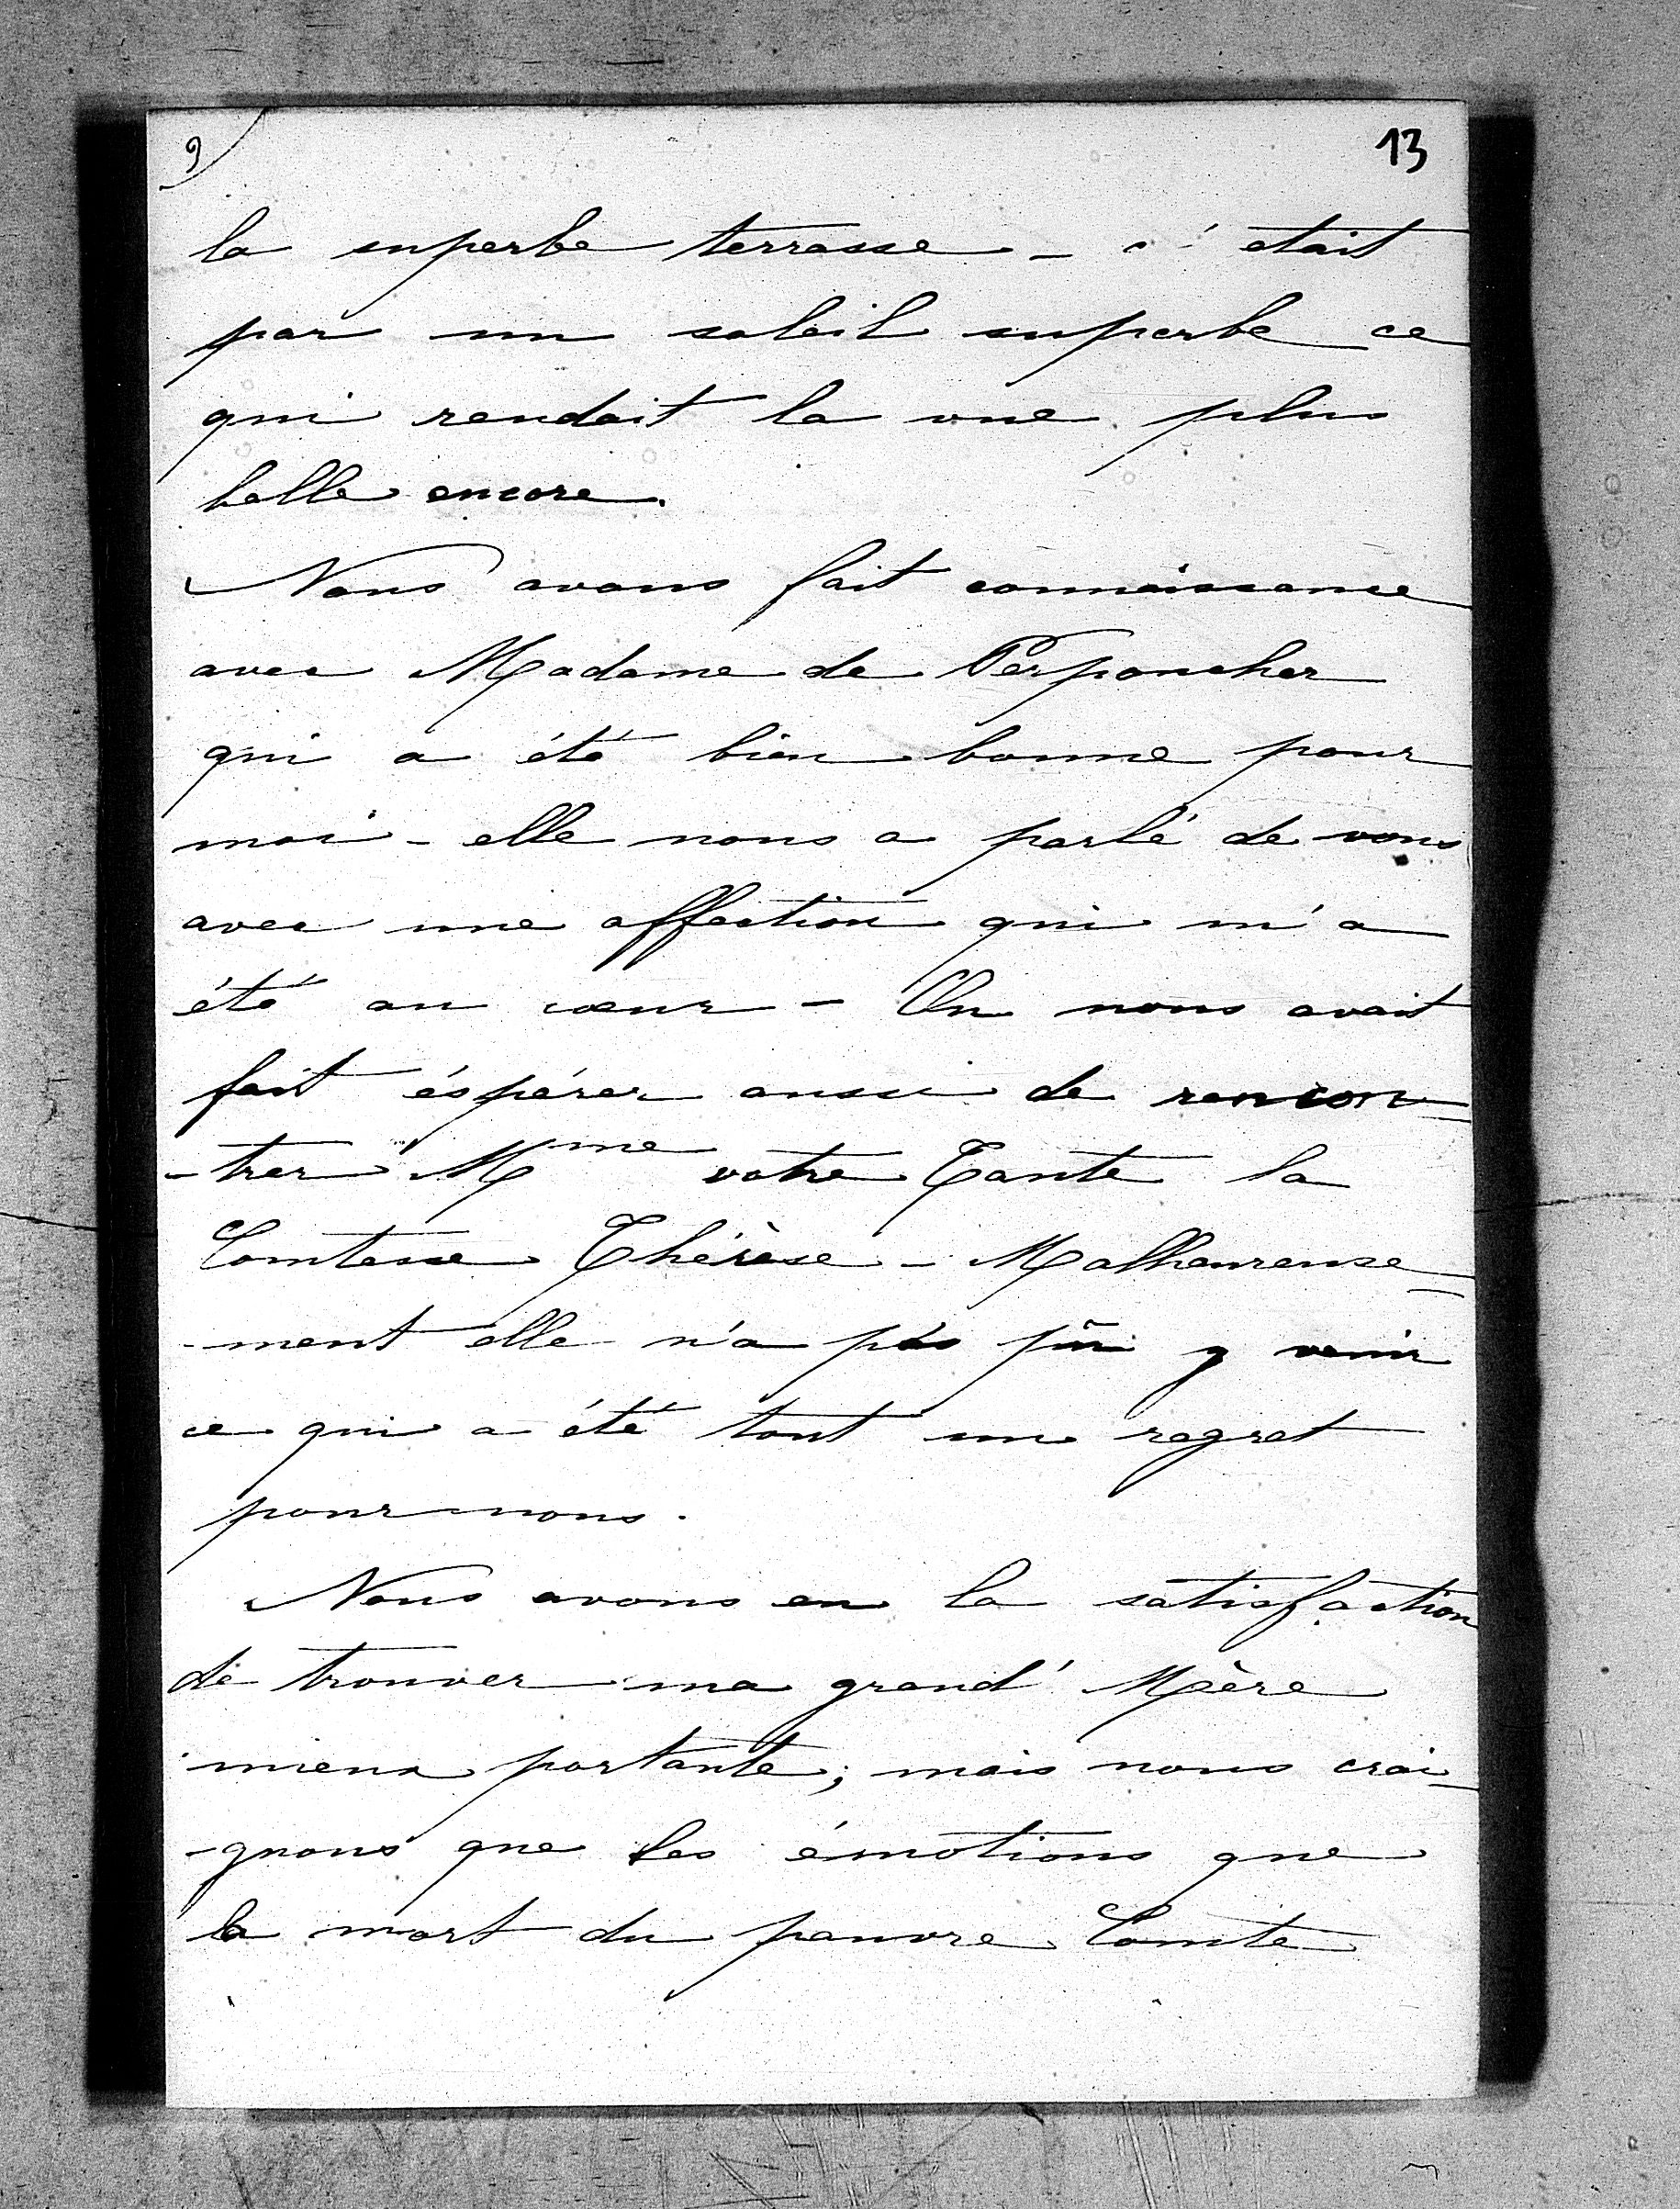 9
13
la superbe terrasse - c'était
par un soleil superbe ce
qui rendait la vue plus
belle encore.
Nous avons fait connaissance
avec Madame de Perponcher
qui a été bien bonne pour
moi - elle nous a parlé de vous
avec une affection qui m'a
été au cœur - On nous avait
fait éspérer aussi de rencon=
-trer Mme votre Tante la
Comtesse Thérèse - Malheureuse=
-ment elle n'a pas pû y venir
ce qui a été tout un regret
pour nous.
Nous avons eu la satisfaction
de trouver ma grand' Mère
mieux portante; mais nous crai-
-gnons que les émotions que
la mort du pauvre Comte